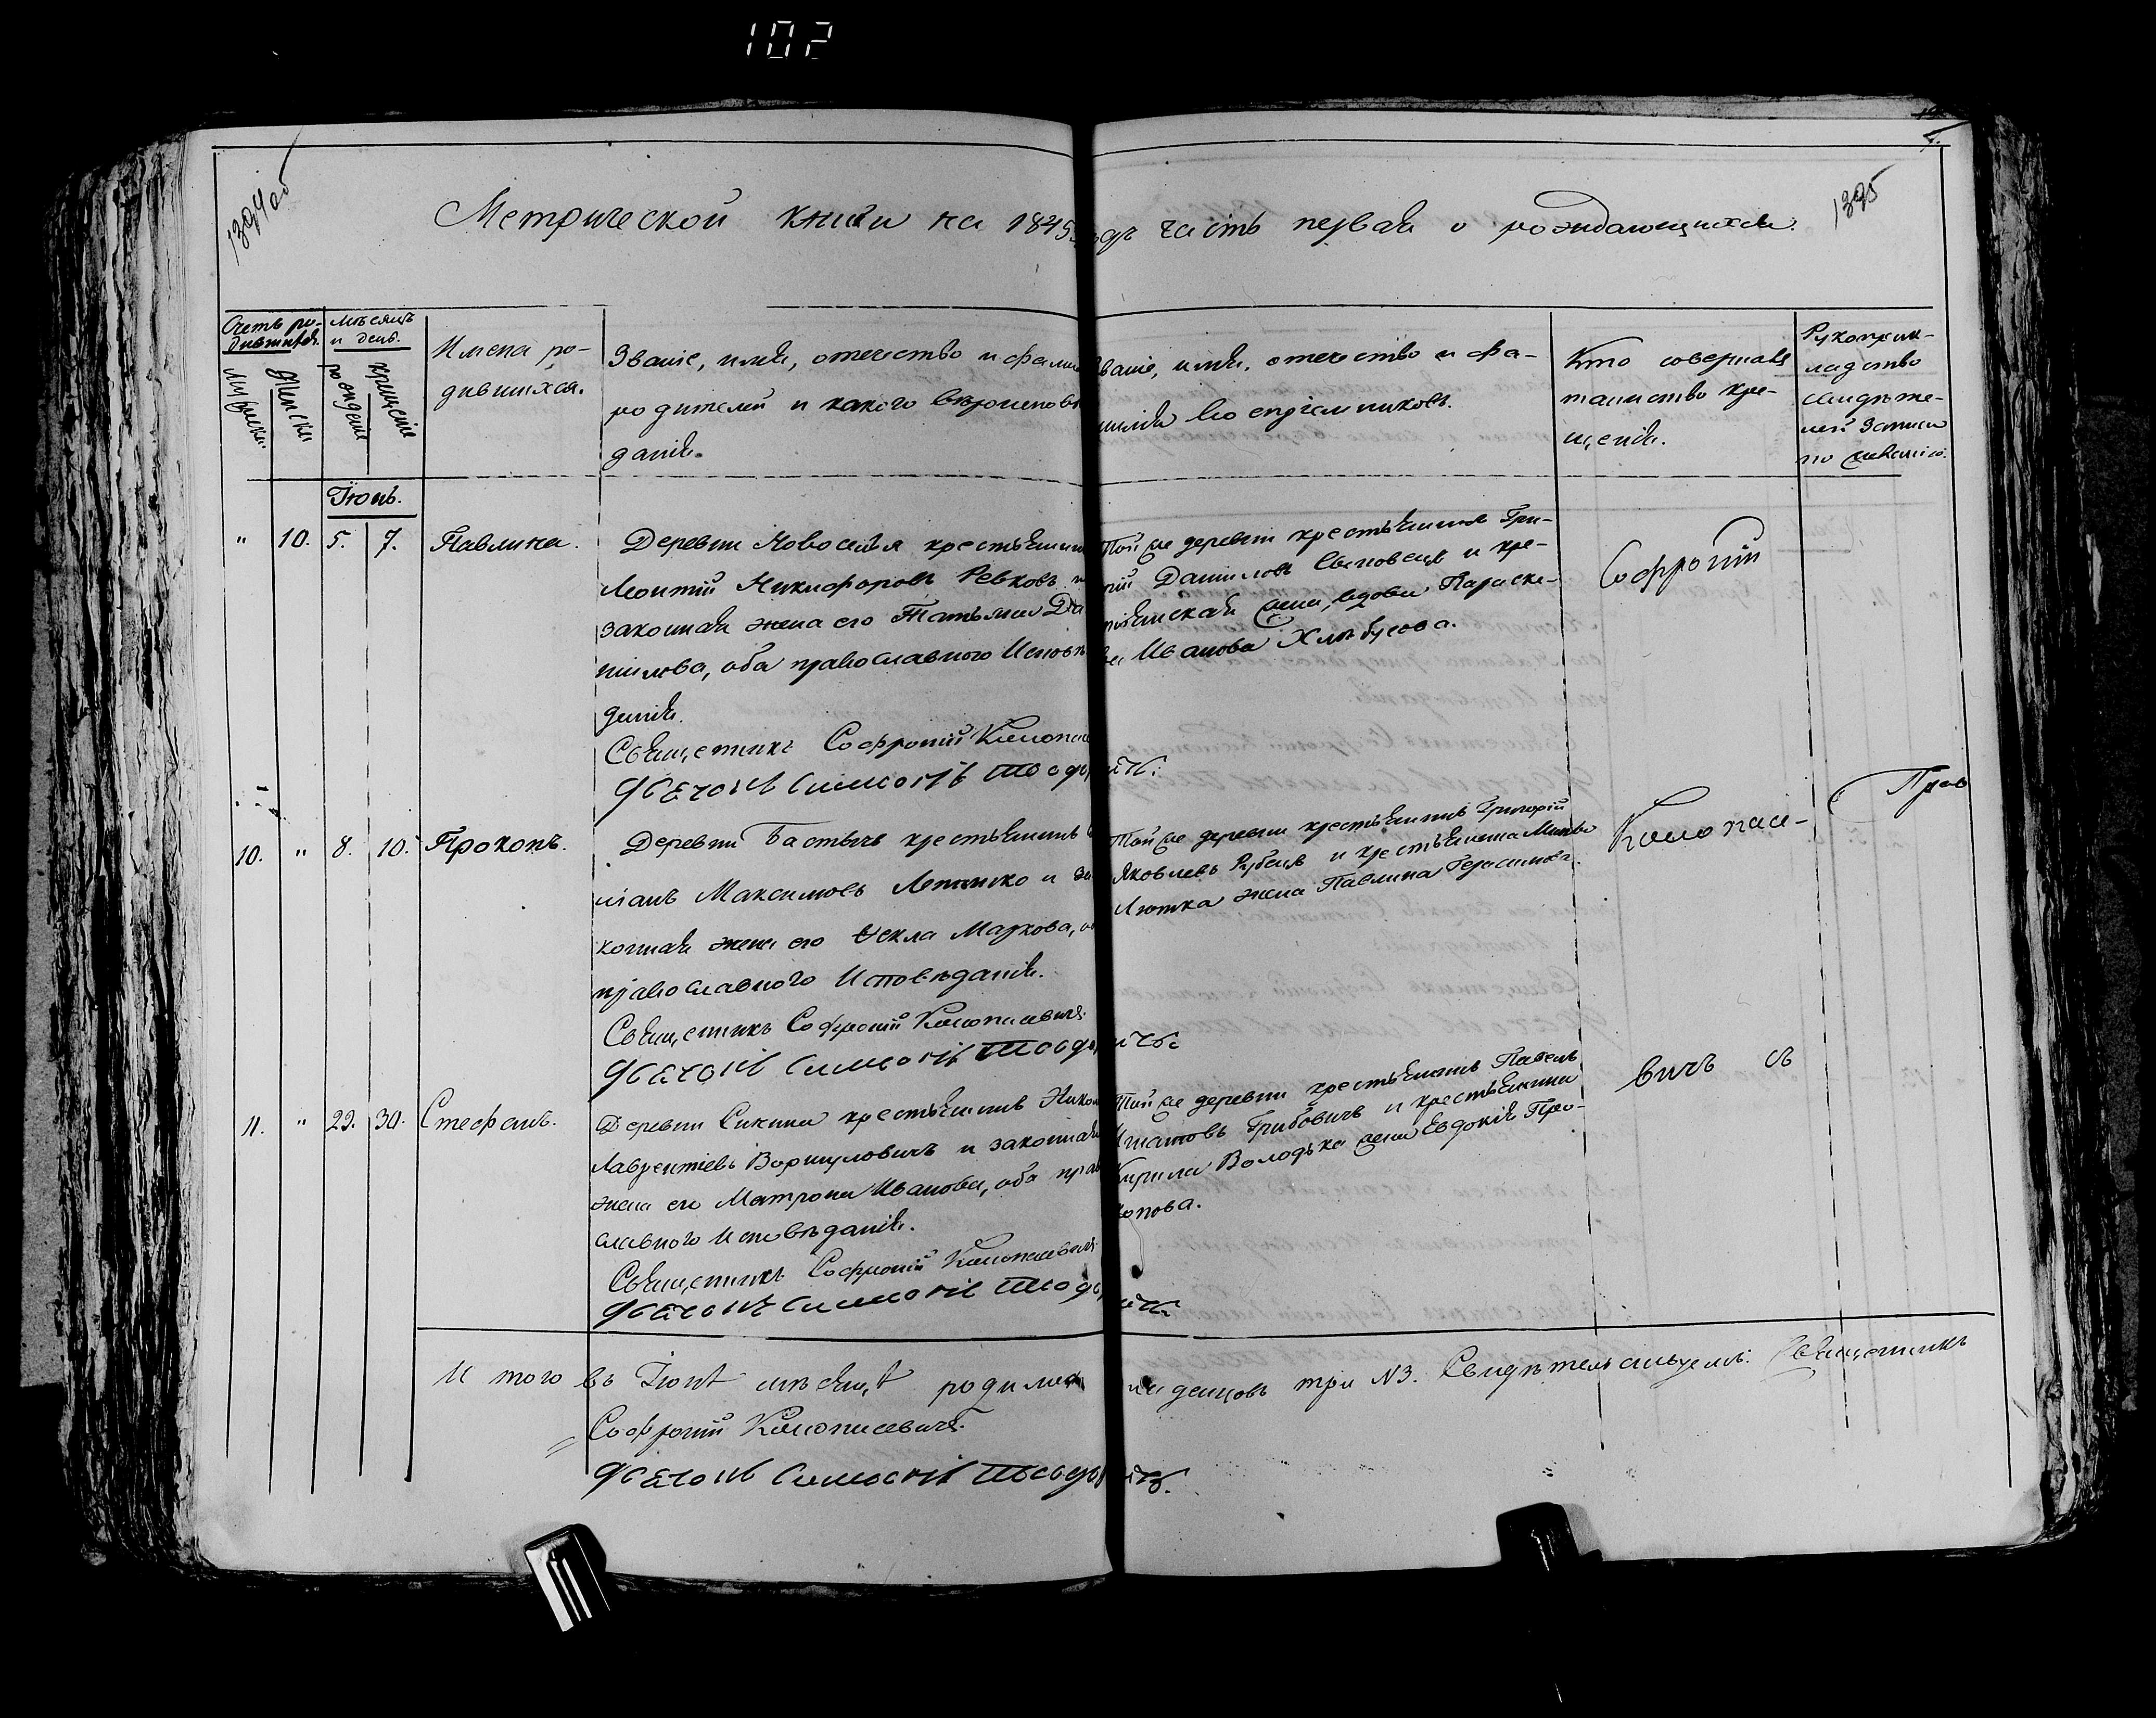 102
1394об
1395
Метрической книги на 1845 годъ часть первая о рождающихся.
Счетъ ро-
дившихся.
Мужески.
Женски
Мѣсяцъ
и день.
рожденіе
крещеніе
Имена ро-
дившихся.
Званіе, имя, отечество и фамил
родителей и какого вѣроисповѣ
данія.
Званіе, имя, отечество и фа-
милія воспріемниковъ.
Кто совершалъ
таинство кре-
щенія.
Рукоприк-
ладство
свидѣте-
лей записи
по желанію.
Іюнь.
" 10. 5. 7. Павлина.
Деревни Новоселья крестьянинъ
Леонтій Никифоровъ Ревковъ и
законная жена его Татьяна Да
нилова, оба православного Исповѣ
данія.
Священникъ Софроній Конопасе
Дьячокъ Симеонъ Теодор
Той же деревни крестьянинъ Гри-
рій Даниловъ и кре-
стьянская жена, вдова Параске-
ва Иванова Хлѣбусова.
Софроній
10. " 8. 10. Прокопъ.
Деревни крестьянинъ
Максимовъ и за
конная жена его Ѳекла Маркова, о
православного Исповѣданія.
Священникъ Софроній Конопасевичъ
Дьячокъ Симеонъ Теодор
Той же деревни крестьянинъ Григорій
Яковлевъ Рубецъ и крестьянина
жена Павлина Герасимова.
Конопасе-
Прав
11. " 29. 30. Стефанъ.
Деревни крестьянинъ Никол
Лаврентіевъ и законная
жена его Матрона Иванова, оба прав
славного Исповѣданія.
Священникъ Софроній Конопасевичъ
Дьячокъ Симеонъ Теодор
Той же деревни крестьянинъ Павелъ
Игнатовъ Грибовичъ и крестьянина
Кирила Володька жена Евдокія Про-
копова.
вичъ съ
И того въ Іюнѣ мѣсяцѣ родилось младенцовъ три N3. Свидѣтельствуемъ: Священникъ
Софроній Конопасевичъ.
Дьячокъ Симеонъ Теодор